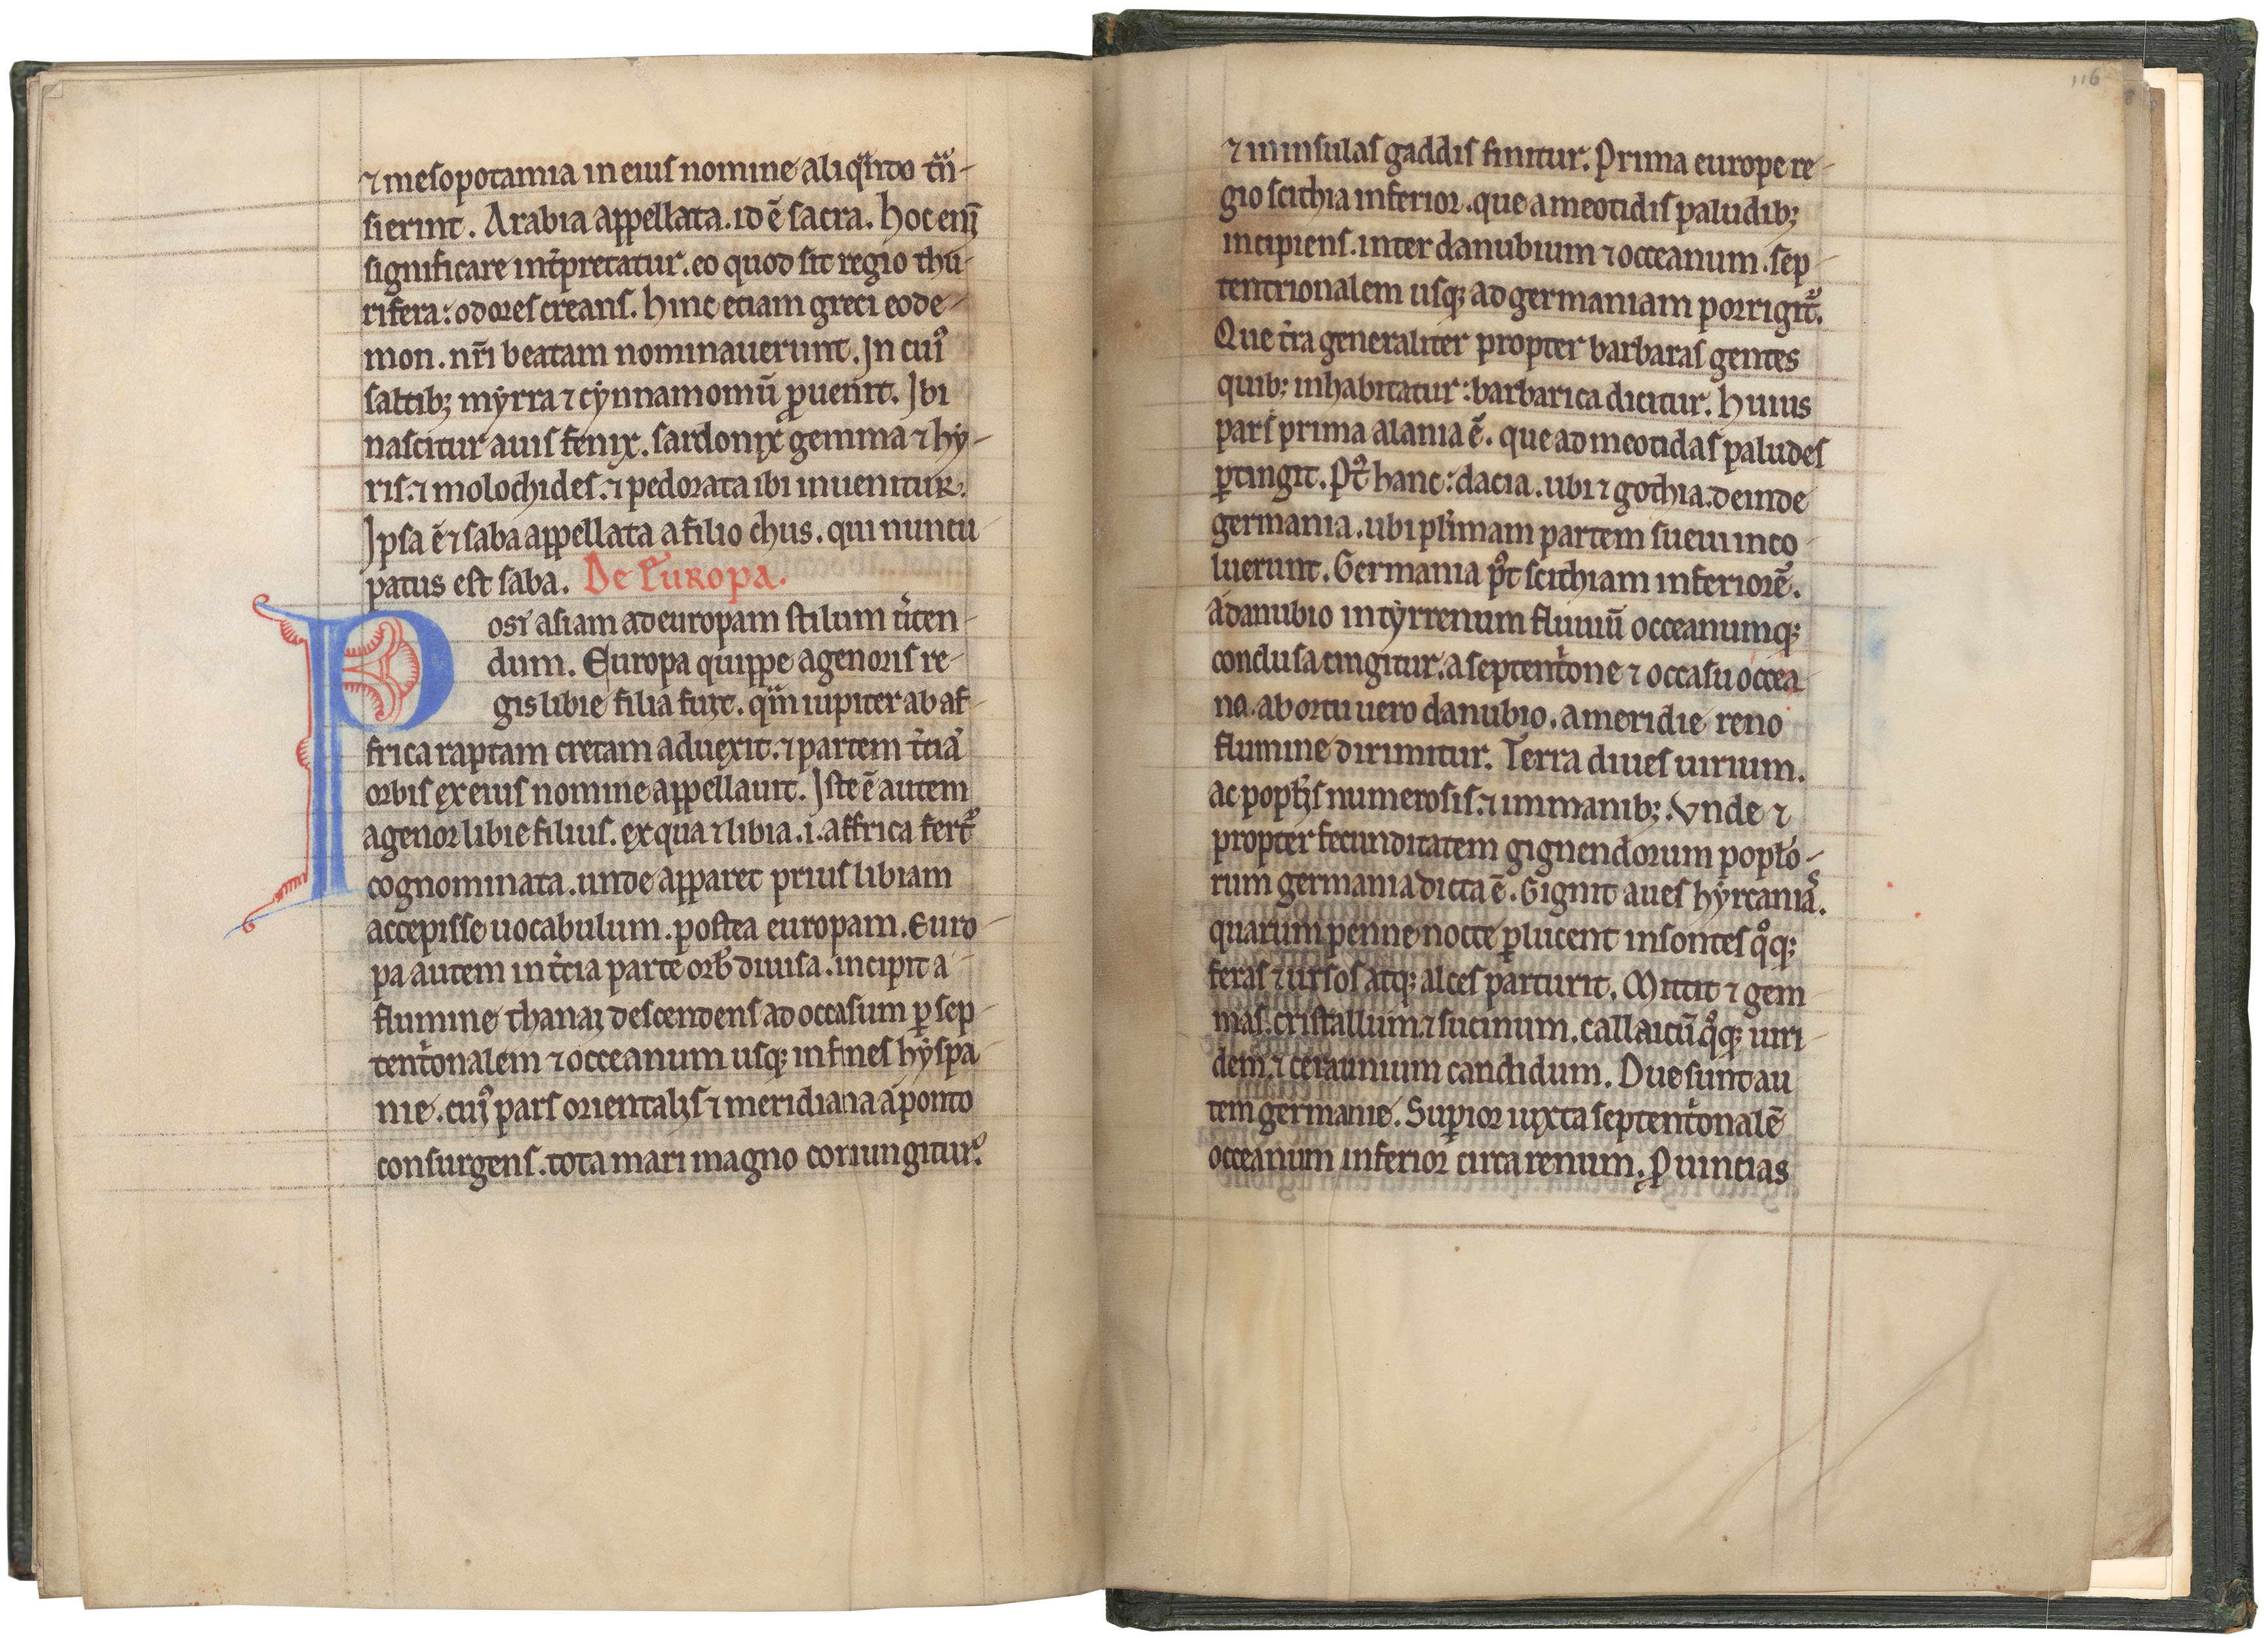 ⁊ mesopotamia in eius nomine aliqn̄do tn̄-
sierint. Arabia appellata. id ē sacra. hoc eni̅
significare int̄pretatur. eo quod sit regio thu-
rifera: odores creans. hinc etiam greci eode-
mon. nr̄i beatam nominauerunt. In cuiꝰ
saltibꝫ myrra ⁊ cynnamomū ꝓuenit. Ibi
nascitur auis fenix. sardonix gemma ⁊ hy-
ris. ⁊ molochides. ⁊ pedorata ibi inuenitur.
Ipsa ē ⁊ saba appellata a filio chus. qui nuncu-
patus est saba. De Europa.
Post asiam ad europam stilum u̇ten-
dum. Europa quippe agenoris re-
gis libie filia fuit. qm̄ iupiter ab af-
frica raptam cretam aduexit. ⁊ partem t̄ciā
orbis ex eius nomine appellauit. Iste ē autem
agenor libie filius. ex qua ⁊ libia .i. affrica fert᷑
cognominata. unde apparet prius libiam
accepisse uocabulum. postea europam. Euro-
pa autem in t̄cia parte orb̄ diuisa. incipit a
flumine thanai descendens ad occasum ꝑ sep-
tent̓onalem ⁊ occeanum usqꝫ in fines hyspa-
nie. cuiꝰ pars orientalis ⁊ meridiana a ponto
consurgens. tota mari magno coniungitur.
116
⁊ in insulas gaddis finitur. Prima europe re-
gio scithia inferior. que a meotidis paludibꝫ
incipiens. inter danubium ⁊ occeanum. sep-
tentrionalem usqꝫ ad germaniam porrigit᷑.
Que t̄ra generaliter propter barbaras gentes
quibꝫ inhabitatur: barbarica dicitur. huius
pars prima alania ē. que ad meotidas paludes
ꝑtingit. Pꝰt hanc: dacia. ubi ⁊ gothia. deinde
germania. ubi pl̄imam partem sueui inco-
luerunt. Germania pꝰt scithiam inferiorē.
a danubio in tyrrenum fluuiū occeanumqꝫ
conclusa cingitur. a septent̓one ⁊ occasu occea-
na. ab ortu uero danubio. a meridie reno
flumine dirimitur. Terra diues uirium.
ac popl̄is numerosis. ⁊ immanibꝫ. Vnde ⁊
propter fecunditatem gignendorum popl̄o-
rum germania dicta ē. Gignit aues hyrcaniā.
quarum penne nocte ꝑlucent insontes qͦqꝫ
feras ⁊ ursos atqꝫ alces parturit. Mittit ⁊ gem-
mas. cristallum. ⁊ sucinum. callaicū qͦqꝫ uiri-
dem. ⁊ ceraunium candidum. Due sunt au
tem germanie. Suꝑior iuxta septent̓onalē
occeanum inferior circa renum. ꝓuincias